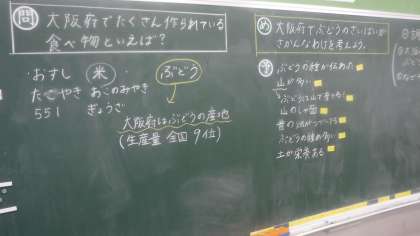 問 大阪府でたくさん作られている
食べ物といえば?
・おすし 米 ぶどう
たこやき おこのみやき
551 ぎょうざ
大阪府はぶどうの産地
(生産量 全国 9位)
め 大阪府でぶどうのさいばいが
さかんなわけを考えよう。
予 ぶどうの種が伝わった
山が多い
ぶどうは山で育つから
山のしゃ面
昔の
ぶどうの
土が栄養ある